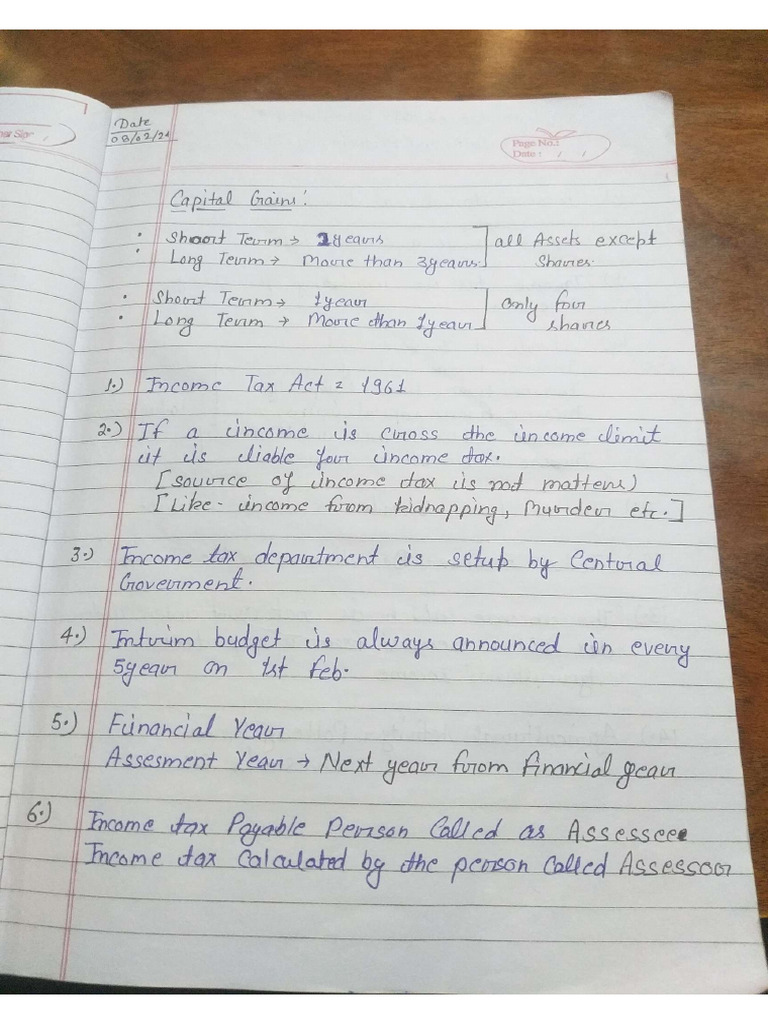 Date
08/02/24
Page No.:
Date : / /
Capital Gains:
• Short Term → 2years
• Long Term → More than 3years.
all Assets except
Shares.
• Short Term → 1year
• Long Term → More than 1year
Only for
shares
1.) Income Tax Act = 1961
2.) If a income is cross the income limit
it is liable for income tax.
[source of income tax is not matters)
[Like - income from kidnapping, Murder etc.]
3.) Income tax department is setup by Central
Goverment.
4.) Intrim budget is always announced in every
5year on 1st Feb.
5.) Financial Year
Assesment Year → Next year from financial year
6.) Income tax Payable Person Called as Assessee
Income tax Calculated by the person Called Assessor